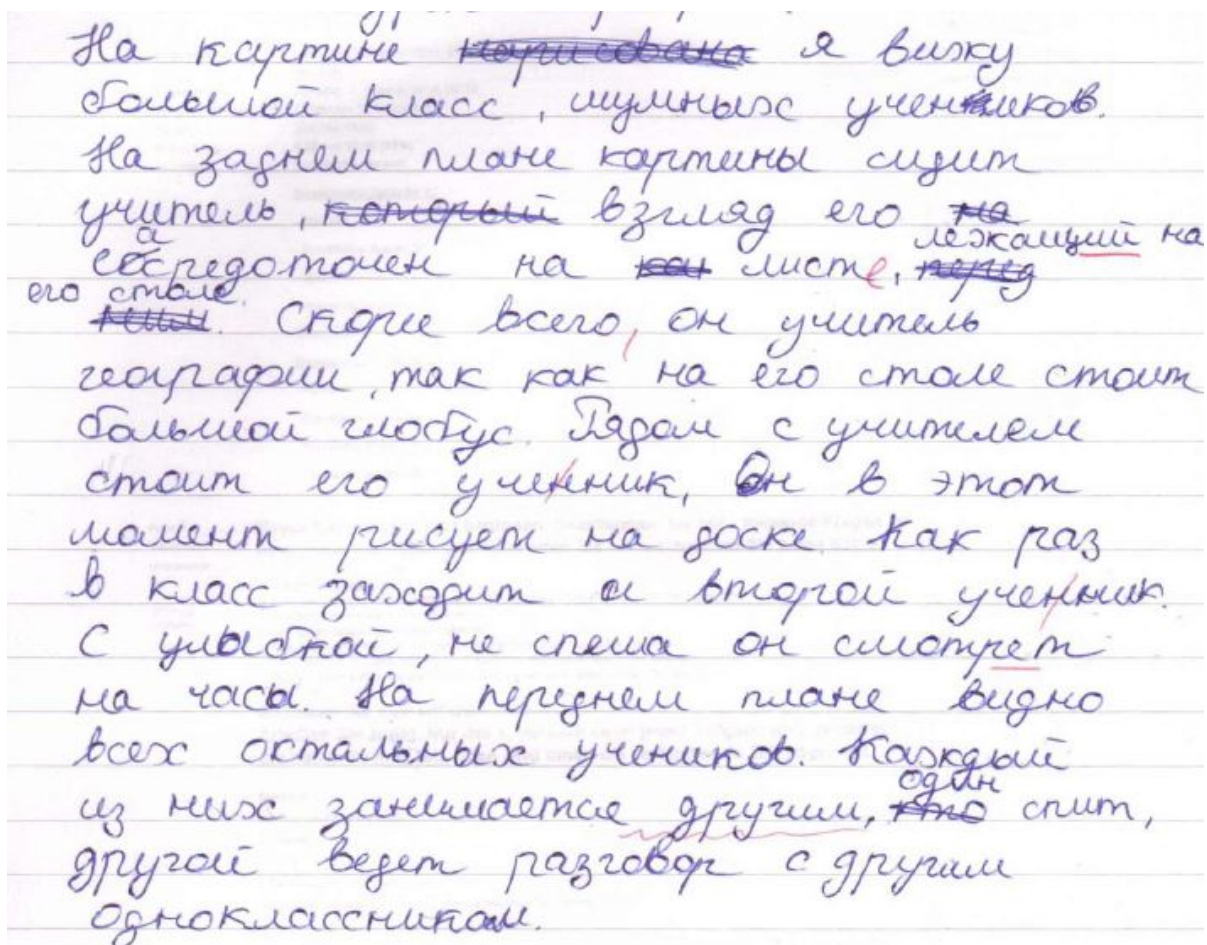 На картине нарисована я вижу
большой класс, шумных учеников.
На заднем плане картины сидит
учитель, который взгляд его на
сасредоточен на листе, лежащий на
его столе. Скорие всего, он учитель
географии, так как на его столе стоит
большой глобус. Рядом с учителем
стоит его ученник, Он в этот
момент рисует на доске. Как раз
в класс заходит и второй ученник.
С улыбкой, не спеша он смотрет
на часы. На переднем плане видно
всех октальных учеников. Каждый
из них занимается другим, один спит,
другой ведет разговор с другим
одноклассником.